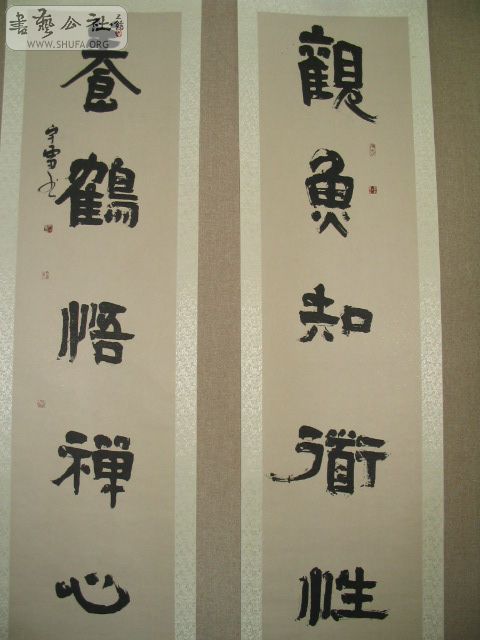 觀魚知衜性
養鶴悟禪心
宇雷书
書藝公社
WWW.SHUFA.ORG